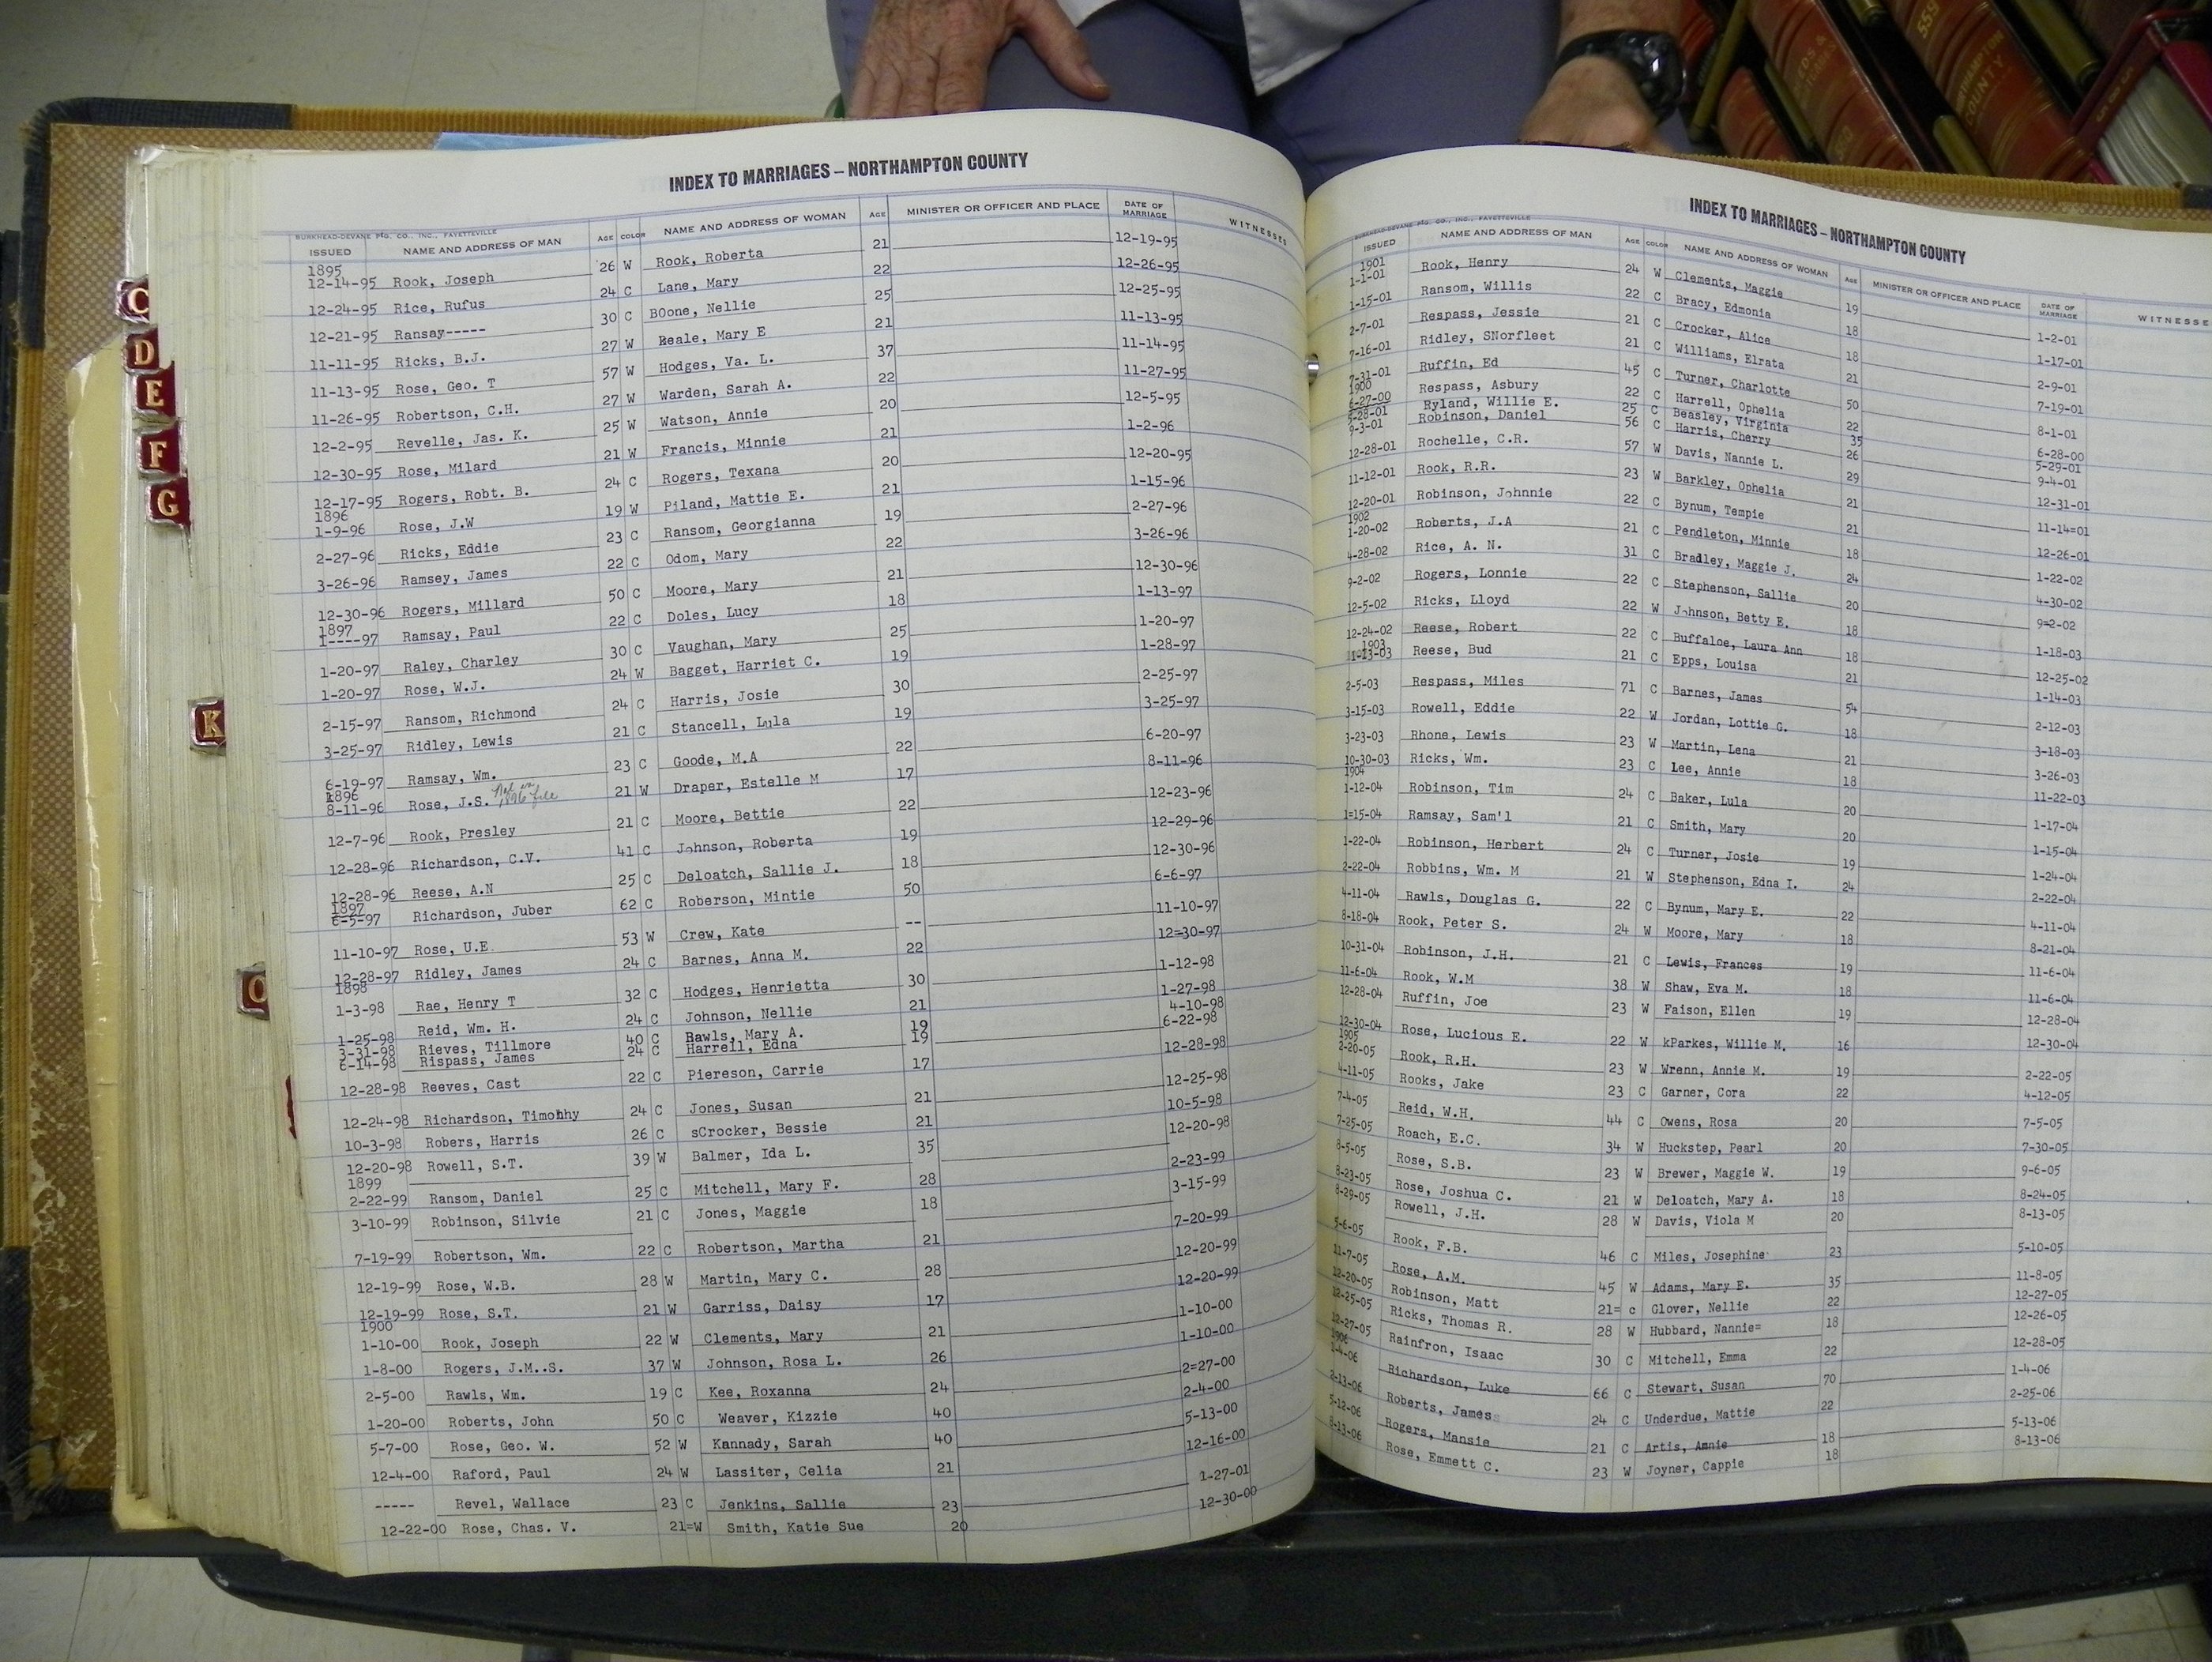 INDEX TO MARRIAGES – NORTHAMPTON COUNTY
BURKHEAD-DEVANE PTG. CO., INC., FAYETTEVILLE
ISSUED NAME AND ADDRESS OF MAN AGE COLOR NAME AND ADDRESS OF WOMAN AGE MINISTER OR OFFICER AND PLACE DATE OF MARRIAGE WITNESSES
1895
12-14-95 Rook, Joseph 26 W Rook, Roberta 21 12-19-95
12-24-95 Rice, Rufus 24 C Lane, Mary 22 12-26-95
12-21-95 Ransay----- 30 C BOone, Nellie 25 12-25-95
11-11-95 Ricks, B.J. 27 W Beale, Mary E 21 11-13-95
11-13-95 Rose, Geo. T 57 W Hodges, Va. L. 37 11-14-95
11-26-95 Robertson, C.H. 27 W Warden, Sarah A. 22 11-27-95
12-2-95 Revelle, Jas. K. 25 W Watson, Annie 20 12-5-95
12-30-95 Rose, Milard 21 W Francis, Minnie 21 1-2-96
12-17-95 Rogers, Robt. B. 24 C Rogers, Texana 20 12-20-95
1896
1-9-96 Rose, J.W 19 W Piland, Mattie E. 21 1-15-96
2-27-96 Ricks, Eddie 23 C Ransom, Georgianna 19 2-27-96
3-26-96 Ramsey, James 22 C Odom, Mary 22 3-26-96
12-30-96 Rogers, Millard 50 C Moore, Mary 21 12-30-96
1897
1----97 Ramsay, Paul 22 C Doles, Lucy 18 1-13-97
1-20-97 Raley, Charley 30 C Vaughan, Mary 25 1-20-97
1-20-97 Rose, W.J. 24 W Bagget, Harriet C. 19 1-28-97
2-15-97 Ransom, Richmond 24 C Harris, Josie 30 2-25-97
3-25-97 Ridley, Lewis 21 C Stancell, Lula 19 3-25-97
6-19-97 Ramsay, Wm. 23 C Goode, M.A 22 6-20-97
1896
8-11-96 Rose, J.S. Not in 1896 file 21 W Draper, Estelle M 17 8-11-96
12-7-96 Rook, Presley 21 C Moore, Bettie 22 12-23-96
12-28-96 Richardson, C.V. 41 C Johnson, Roberta 19 12-29-96
12-28-96 Reese, A.N 25 C Deloatch, Sallie J. 18 12-30-96
1897
6-5-97 Richardson, Juber 62 C Roberson, Mintie 50 6-6-97
11-10-97 Rose, U.E. 53 W Crew, Kate -- 11-10-97
12-28-97 Ridley, James 24 C Barnes, Anna M. 22 12=30-97
1898
1-3-98 Rae, Henry T 32 C Hodges, Henrietta 30 1-12-98
1-25-98 Reid, Wm. H. 24 C Johnson, Nellie 21 1-27-98
3-31-98 Rieves, Tillmore 40 C Rawls, Mary A. 19 4-10-98
6-14-98 Rispass, James 24 C Harrell, Edna 19 6-22-98
12-28-98 Reeves, Cast 22 C Piereson, Carrie 17 12-28-98
12-24-98 Richardson, Timothy 24 C Jones, Susan 21 12-25-98
10-3-98 Robers, Harris 26 C sCrocker, Bessie 21 10-5-98
12-20-98 Rowell, S.T. 39 W Balmer, Ida L. 35 12-20-98
1899
2-22-99 Ransom, Daniel 25 C Mitchell, Mary F. 28 2-23-99
3-10-99 Robinson, Silvie 21 C Jones, Maggie 18 3-15-99
7-19-99 Robertson, Wm. 22 C Robertson, Martha 21 7-20-99
12-19-99 Rose, W.B. 28 W Martin, Mary C. 28 12-20-99
12-19-99 Rose, S.T. 21 W Garriss, Daisy 17 12-20-99
1900
1-10-00 Rook, Joseph 22 W Clements, Mary 21 1-10-00
1-8-00 Rogers, J.M..S. 37 W Johnson, Rosa L. 26 1-10-00
2-5-00 Rawls, Wm. 19 C Kee, Roxanna 24 2=27-00
1-20-00 Roberts, John 50 C Weaver, Kizzie 40 2-4-00
5-7-00 Rose, Geo. W. 52 W Kannady, Sarah 40 5-13-00
12-4-00 Raford, Paul 24 W Lassiter, Celia 21 12-16-00
----- Revel, Wallace 23 C Jenkins, Sallie 23 1-27-01
12-22-00 Rose, Chas. V. 21=W Smith, Katie Sue 20 12-30-00
INDEX TO MARRIAGES – NORTHAMPTON COUNTY
BURKHEAD-DEVANE PTG. CO., INC., FAYETTEVILLE
ISSUED NAME AND ADDRESS OF MAN AGE COLOR NAME AND ADDRESS OF WOMAN AGE MINISTER OR OFFICER AND PLACE DATE OF MARRIAGE WITNESSE
1901
1-1-01 Rook, Henry 24 W Clements, Maggie 19 1-2-01
1-15-01 Ransom, Willis 22 C Bracy, Edmonia 18 1-17-01
2-7-01 Respass, Jessie 21 C Crocker, Alice 18 2-9-01
7-16-01 Ridley, SNorfleet 21 C Williams, Elrata 21 7-19-01
7-31-01 Ruffin, Ed 45 C Turner, Charlotte 50 8-1-01
1900
6-27-00 Respass, Asbury 22 C Harrell, Ophelia 22 6-28-00
5-28-01 Ryland, Willie E. 25 C Beasley, Virginia 35 5-29-01
9-3-01 Robinson, Daniel 56 C Harris, Cherry 26 9-4-01
12-28-01 Rochelle, C.R. 57 W Davis, Nannie L. 29 12-31-01
11-12-01 Rook, R.R. 23 W Barkley, Ophelia 21 11-14=01
12-20-01 Robinson, Johnnie 22 C Bynum, Tempie 21 12-26-01
1902
1-20-02 Roberts, J.A 21 C Pendleton, Minnie 18 1-22-02
4-28-02 Rice, A. N. 31 C Bradley, Maggie J. 24 4-30-02
9-2-02 Rogers, Lonnie 22 C Stephenson, Sallie 20 9=2-02
12-5-02 Ricks, Lloyd 22 W Johnson, Betty E. 18 1-18-03
12-24-02 Reese, Robert 22 C Buffaloe, Laura Ann 18 12-25-02
1903
1-13-03 Reese, Bud 21 C Epps, Louisa 21 1-14-03
2-5-03 Respass, Miles 71 C Barnes, James 54 2-12-03
3-15-03 Rowell, Eddie 22 W Jordan, Lottie G. 18 3-18-03
3-23-03 Rhone, Lewis 23 W Martin, Lena 21 3-26-03
10-30-03 Ricks, Wm. 23 C Lee, Annie 18 11-22-03
1904
1-12-04 Robinson, Tim 24 C Baker, Lula 20 1-17-04
1=15-04 Ramsay, Sam'l 21 C Smith, Mary 20 1-15-04
1-22-04 Robinson, Herbert 24 C Turner, Josie 19 1-24-04
2-22-04 Robbins, Wm. M 21 W Stephenson, Edna I. 24 2-22-04
4-11-04 Rawls, Douglas G. 22 C Bynum, Mary E. 22 4-11-04
8-18-04 Rook, Peter S. 24 W Moore, Mary 18 8-21-04
10-31-04 Robinson, J.H. 21 C Lewis, Frances 19 11-6-04
11-6-04 Rook, W.M 38 W Shaw, Eva M. 18 11-6-04
12-28-04 Ruffin, Joe 23 W Faison, Ellen 19 12-28-04
12-30-04 Rose, Lucious E. 22 W kParkes, Willie M. 16 12-30-04
1905
2-20-05 Rook, R.H. 23 W Wrenn, Annie M. 19 2-22-05
4-11-05 Rooks, Jake 23 C Garner, Cora 22 4-12-05
7-4-05 Reid, W.H. 44 C Owens, Rosa 20 7-5-05
7-25-05 Roach, E.C. 34 W Huckstep, Pearl 20 7-30-05
8-5-05 Rose, S.B. 23 W Brewer, Maggie W. 19 9-6-05
8-23-05 Rose, Joshua C. 21 W Deloatch, Mary A. 18 8-24-05
8-29-05 Rowell, J.H. 28 W Davis, Viola M 20 8-13-05
5-6-05 Rook, F.B. 46 C Miles, Josephine 23 5-10-05
11-7-05 Rose, A.M. 45 W Adams, Mary E. 35 11-8-05
12-20-05 Robinson, Matt 21= c Glover, Nellie 22 12-27-05
12-25-05 Ricks, Thomas R. 28 W Hubbard, Nannie= 18 12-26-05
12-27-05 Rainfron, Isaac 30 C Mitchell, Emma 22 12-28-05
1906
1-4-06 Richardson, Luke 66 C Stewart, Susan 70 1-4-06
2-13-06 Roberts, James 24 C Underdue, Mattie 22 2-25-06
5-12-06 Rogers, Mansie 21 C Artis, Annie 18 5-13-06
8-13-06 Rose, Emmett C. 23 W Joyner, Cappie 18 8-13-06
C
D
E
F
G
K
559
COUNTY